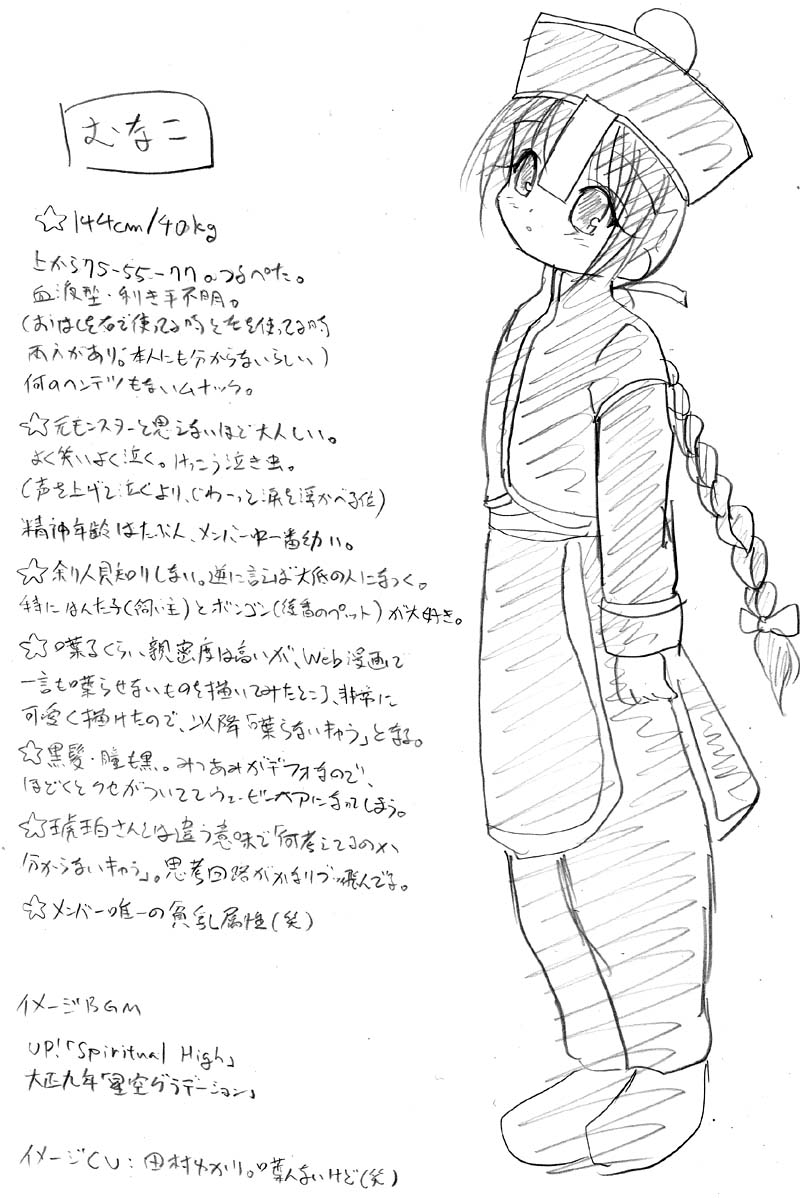 むなこ
☆144cm/40kg
上から75-55-77。つるぺた。
血液型・利き手不明。
(おはしを右で使ってる時と左を使ってる時
両方があり。本人にも分からないらしい)
何のヘンテツもないムナック。
☆元モンスターと思えないほど大人しい。
よく笑いよく泣く。けっこう泣き虫。
(声を上げて泣くより、じわーっと涙を浮かべる位)
精神年齢はたぶん、メンバー中一番幼い。
☆余り人見知りしない。逆に言えば大低の人になつく。
特にはんた子(飼い主)とボンゴン(後番のペット)が大好き。
☆喋るくらい親密度は高いが、Web漫画で
一言も喋らせないものを描いてみたところ、非常に
可愛く描けたので、以降「喋らないキャラ」となる。
☆黒髪・瞳も黒。みつあみがデフォなので、
ほどくとクセがついててウェービーヘアになってしまう。
☆琥珀さんとは違う意味で「何考えてるのか
分からないキャラ」。思考回路がかなりブッ飛んでる。
☆メンバー唯一の貧乳属性(笑)
イメージBGM
UP!「Spiritual High」
大正九年「星空グラデーション」
イメージCV:田村ゆかり。喋んないけど(笑)